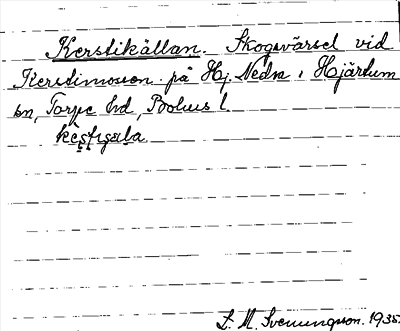 Kerstikällan. Skogsvärsel vid
Kerstimosen på Hj. Nedra i Hjärtum
sn, Torpe hd, Bohus l.
S. M. Svenungsson. 1935.